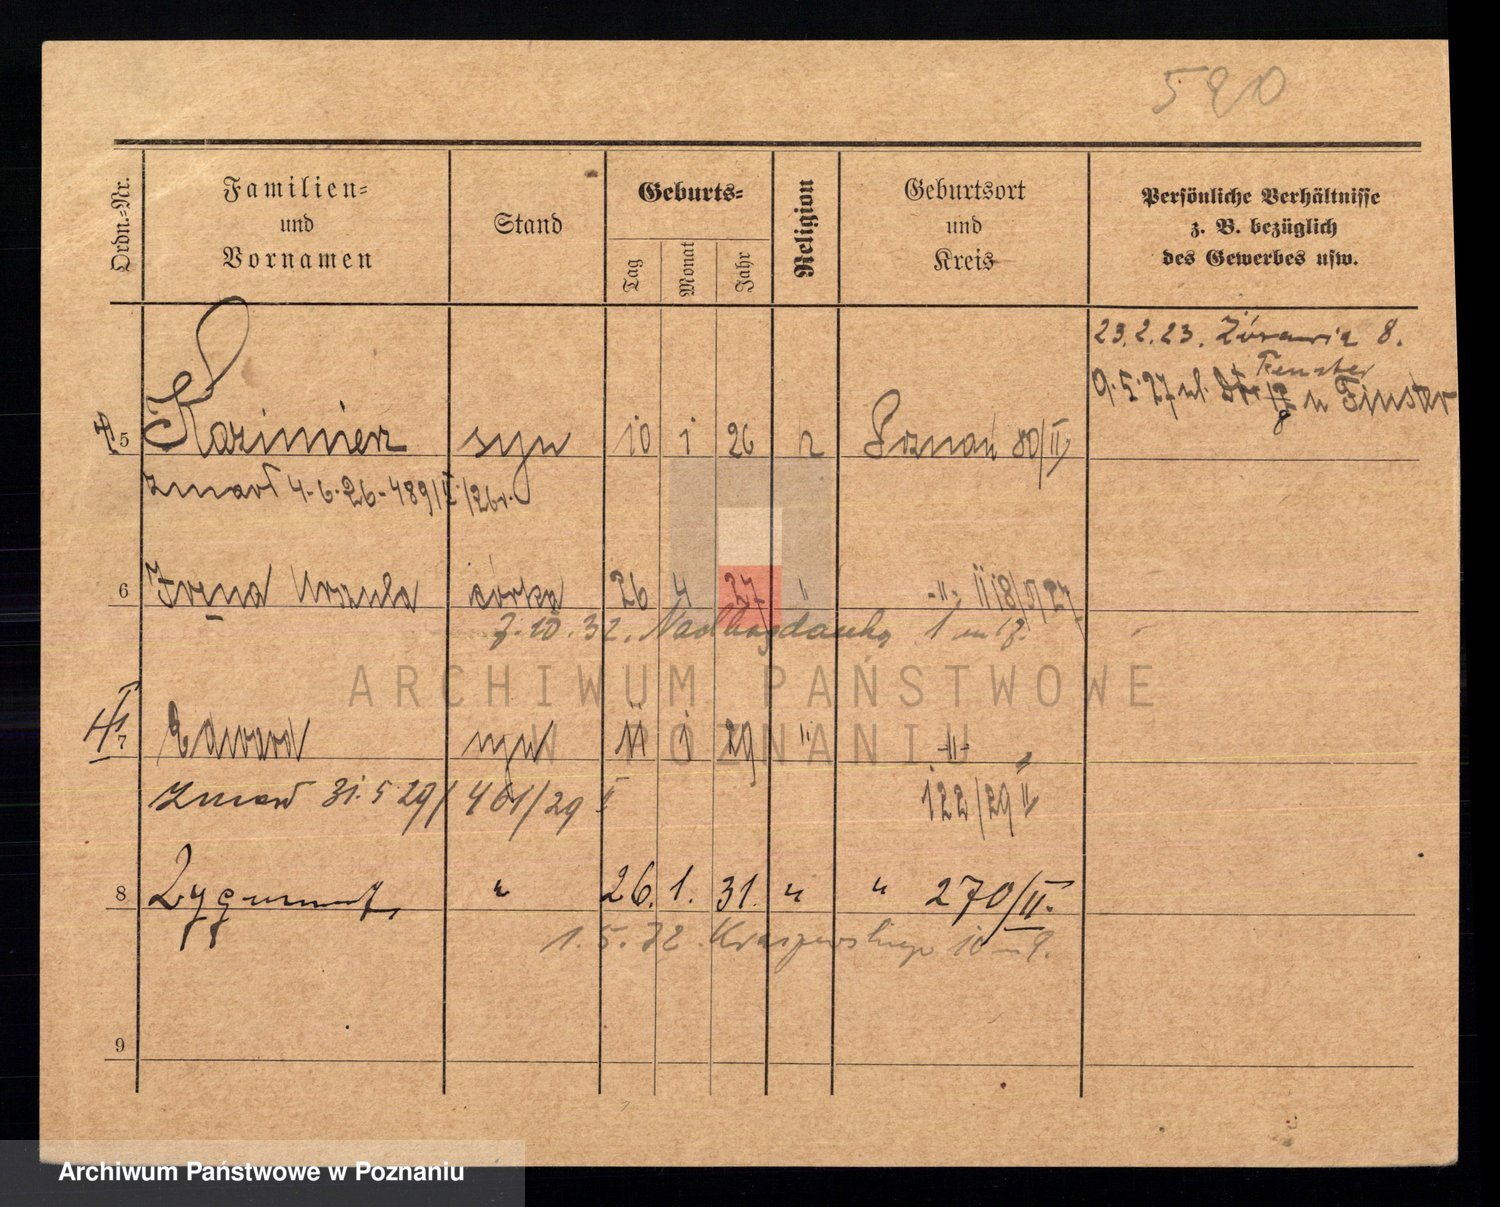 520
Ordn.=Nr.
Familien=
und
Vornamen
Stand
Geburts=
Tag
Monat
Jahr
Religion
Geburtsort
und
Kreis
Persönliche Verhältnisse
z. B. bezüglich
des Gewerbes usw.
23.2.23. Żórawia 8.
Fenster
9.5.27 u Finster
5 Kazimierz syn 10 1 26 r Poznań 80/II
zmarł 4-6-26-489/II/26r.
6 Irena Urszula córka 26 4 27 " -"-
7.10.32. Nadbogdanką 1 m 17.
7 Edward syn 11 1 29 " -"-
zmarł 31.5 29/461/29 II
122/29 II
8 Zygmunt " 26. 1. 31. " " 270/II.
1.5.32 Kraszewskiego 10 m 9.
9
ARCHIWUM PAŃSTWOWE
W POZNANIU
Archiwum Państwowe w Poznaniu